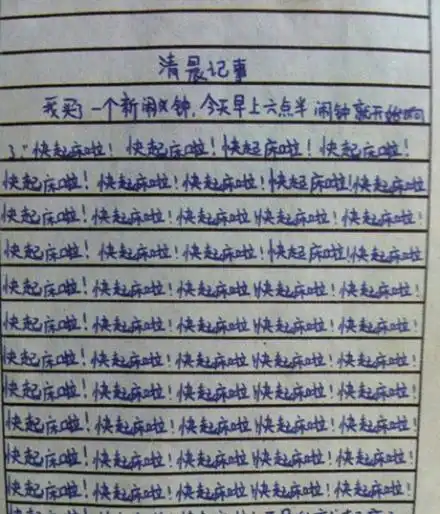 清晨记事
我买了一个新闹钟,今天早上六点半闹钟就开始响
了:“快起床啦!快起床啦!快起床啦!快起床啦!
快起床啦!快起床啦!快起床啦!快起床啦!快起床啦
快起床啦!快起床啦!快起床啦快起床啦!快起床啦!
快起床啦!快起床啦!快起床啦!快起床啦!快起床啦
快起床啦!快起床啦!快起床啦快起床啦!快起床啦!
快起床啦!快起床啦!快起床啦快起床啦!快起床啦!
快起床啦!快起床啦!快起床啦快起床啦!快起床啦!
快起床啦!快起床啦!快起床啦快起床啦!快起床啦!
快起床啦!快起床啦!快起床啦快起床啦!快起床啦!
快起床啦!快起床啦!快起床啦快起床啦!快起床啦!
快起床啦!快起床啦!快起床啦快起床啦!快起床啦!